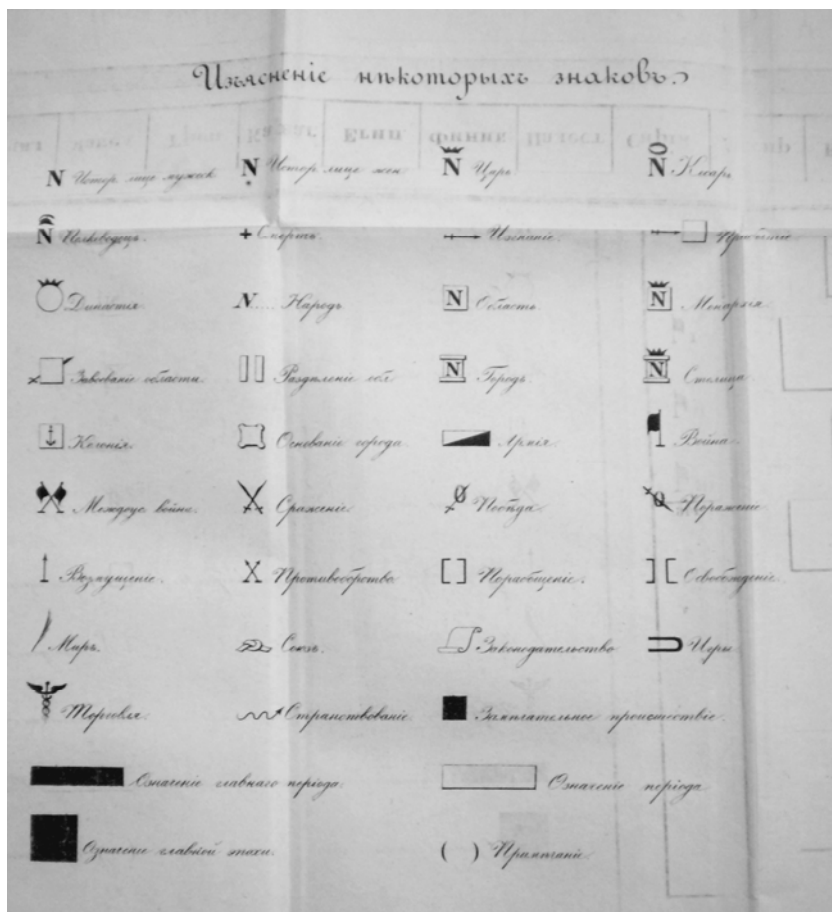 Изъясненіе нѣкоторыхъ знаковъ.
N Истор. лице мужеск. N Истор. лице жен. N Царь N Князь
N Полководецъ. + Смерть. Изгнаніе. Прибытіе
Династія N..... Народъ N Область. N Монархія
Завоеваніе области. Раздѣленіе обл. N Городъ. N Столица
Колонія. Основаніе города. Армія. Война.
Междоус. война. Сраженіе. Побѣда Пораженіе
Возмущеніе. Противоборство Порабощеніе. Освобожденіе.
Миръ. Союзъ. Законодательство Игры
Торговля. Странствованіе. Замѣчательное происшествіе.
Означеніе главнаго періода. Означеніе періода
Означеніе главной эпохи. ( ) Примѣчаніе.